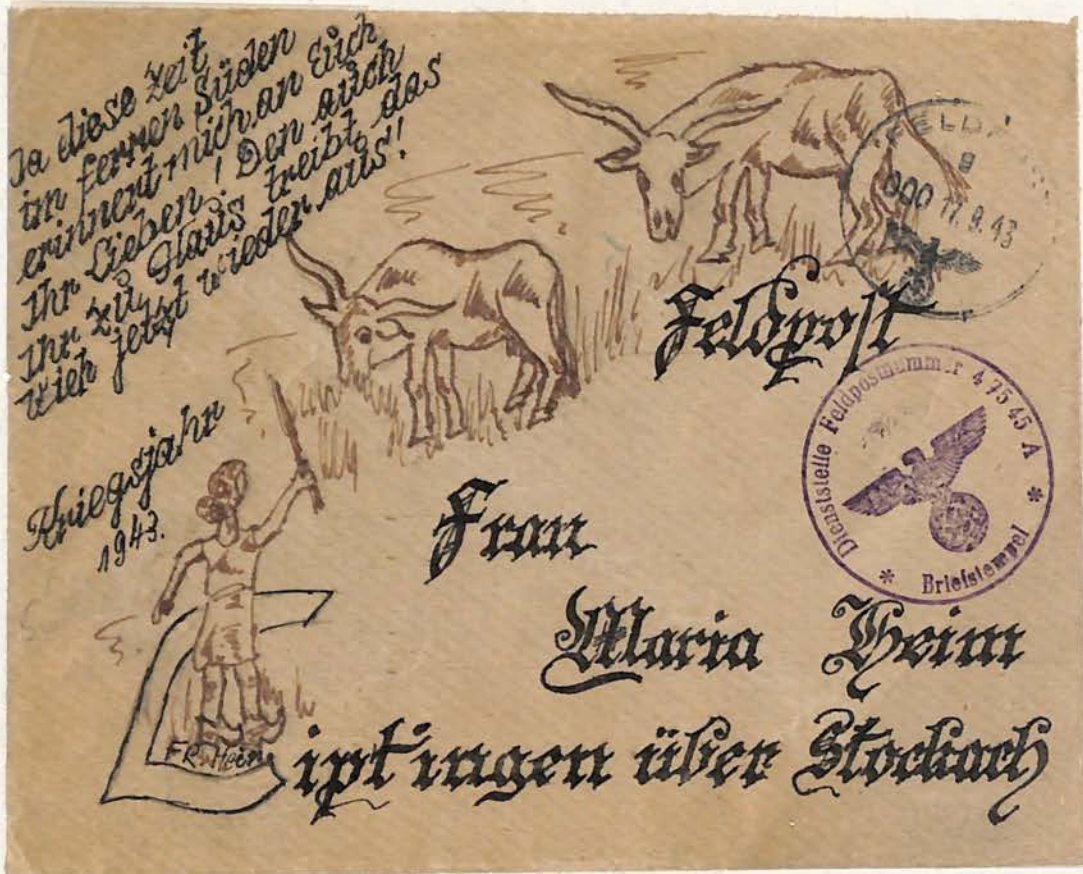 Ja diese Zeit
im fernen Süden
erinnert mich an Euch
Ihr Lieben! Den auch
Ihr zu Haus treibt das
Vieh jetzt wieder aus!
Kriegsjahr
1943.
17.9.43
Feldpost
Dienststelle Feldpostnummer 47545 A
* Briefstempel *
Frau
Maria Heim
Liptingen über Stockach
FR. Heim